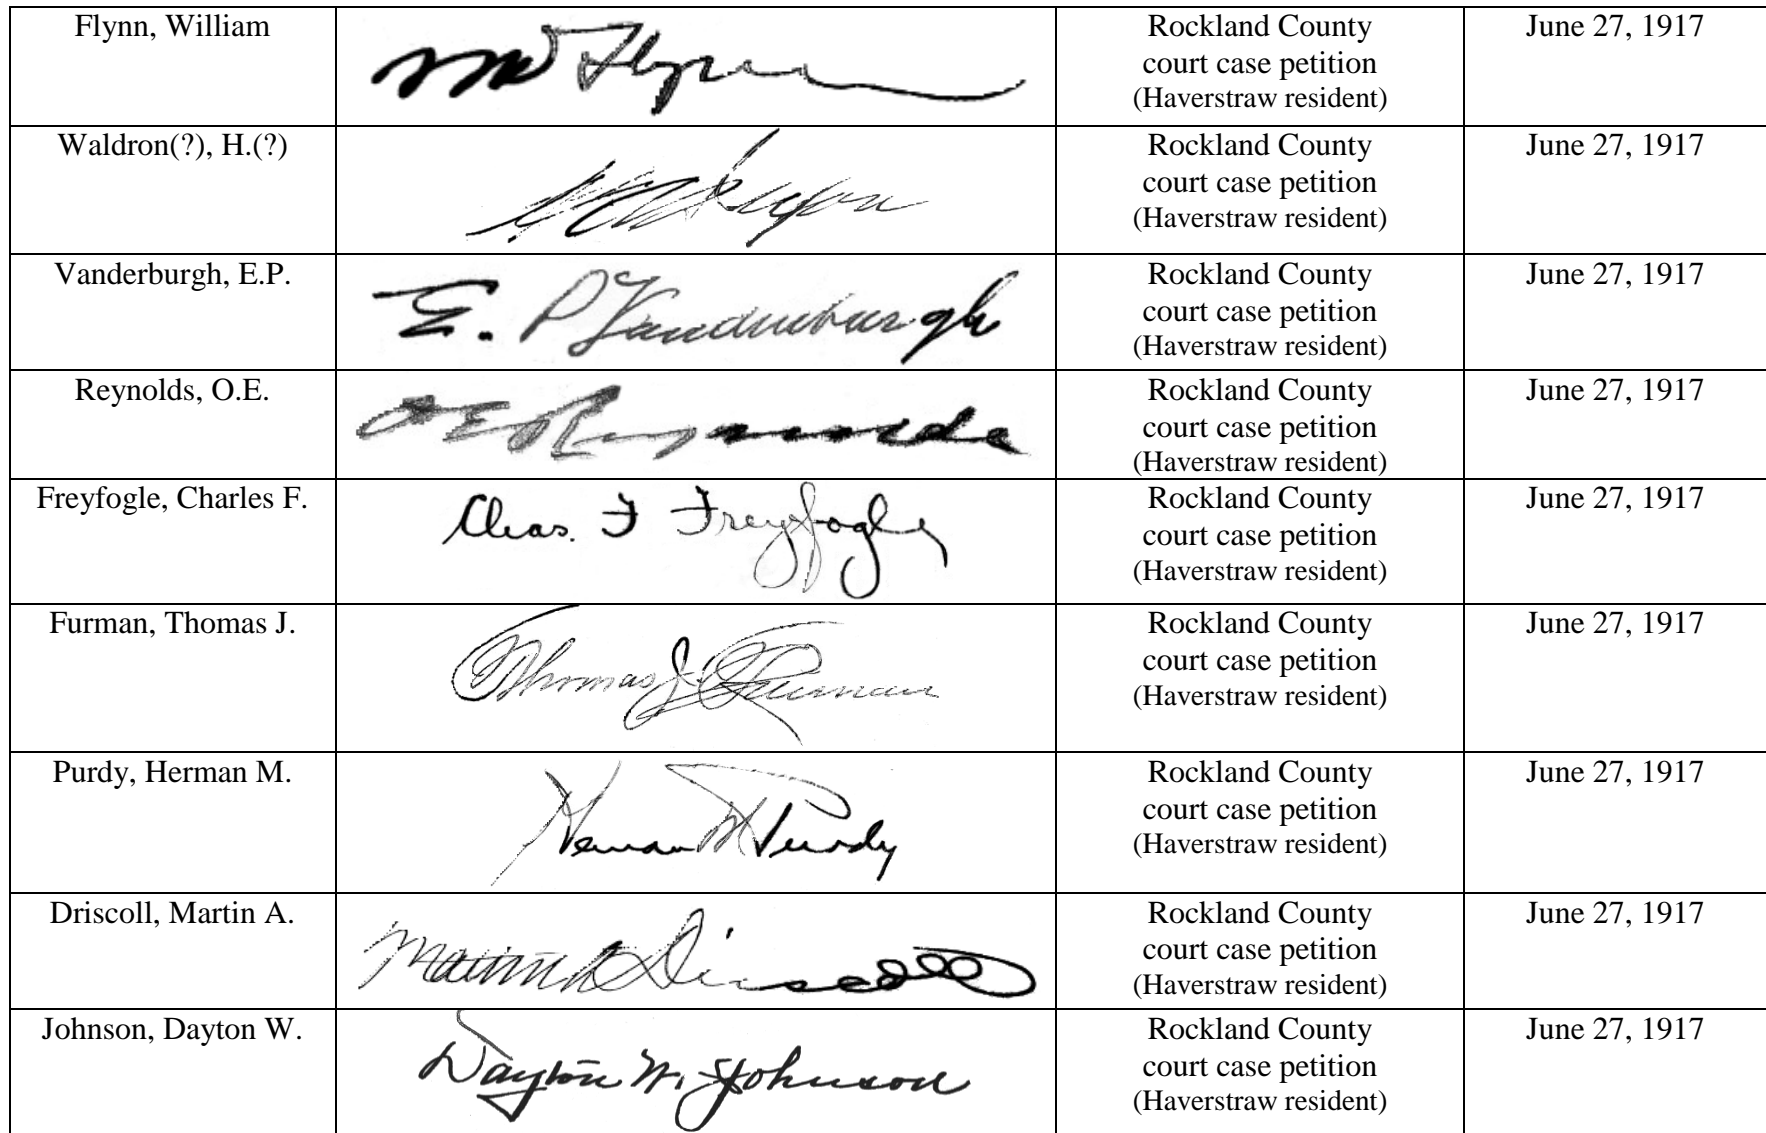 Flynn, William
Wm Flynn
Rockland County
court case petition
(Haverstraw resident)
June 27, 1917
Waldron(?), H.(?)
Rockland County
court case petition
(Haverstraw resident)
June 27, 1917
Vanderburgh, E.P.
E. P Vanderburgh
Rockland County
court case petition
(Haverstraw resident)
June 27, 1917
Reynolds, O.E.
O E Reynolds
Rockland County
court case petition
(Haverstraw resident)
June 27, 1917
Freyfogle, Charles F.
Chas. F Freyfogle
Rockland County
court case petition
(Haverstraw resident)
June 27, 1917
Furman, Thomas J.
Thomas J. Furman
Rockland County
court case petition
(Haverstraw resident)
June 27, 1917
Purdy, Herman M.
Herman M Purdy
Rockland County
court case petition
(Haverstraw resident)
June 27, 1917
Driscoll, Martin A.
Martin A Driscoll
Rockland County
court case petition
(Haverstraw resident)
June 27, 1917
Johnson, Dayton W.
Dayton W. Johnson
Rockland County
court case petition
(Haverstraw resident)
June 27, 1917